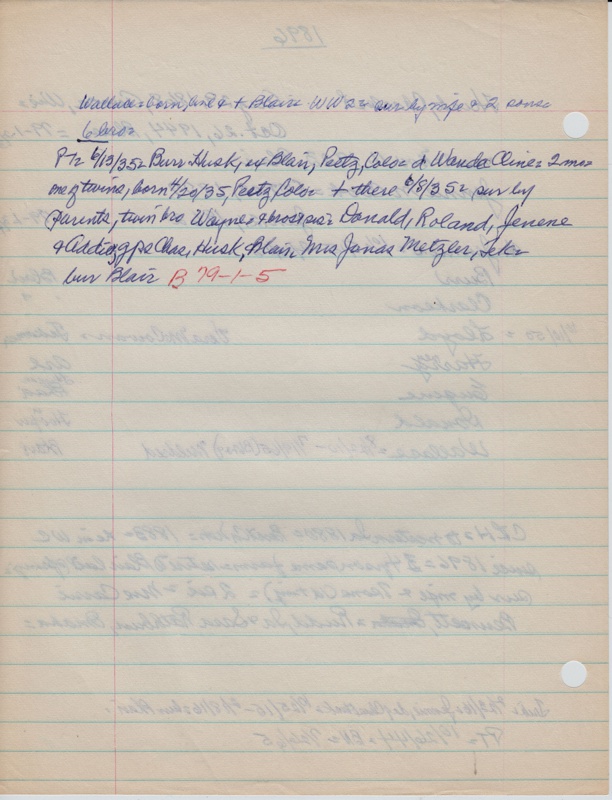 Wallace = born, and + Blair = WW2 = sur by wife + 2 sons =
6 bros =
Pt = 6/13/35 = Burr Husk, ex Blair, Peetz, Colo = d Wanda Cline = 2 mo =
one of twins, born 4/20/35, Peetz, Colo = + there 6/8/35 = sur by
parents, twin bro Wayne, + bros + sis = Donald, Roland, Jenene
+ gps Chas, Husk, Blair, Mrs Jonas Metzler, Tek =
bur Blair B 79-1-5